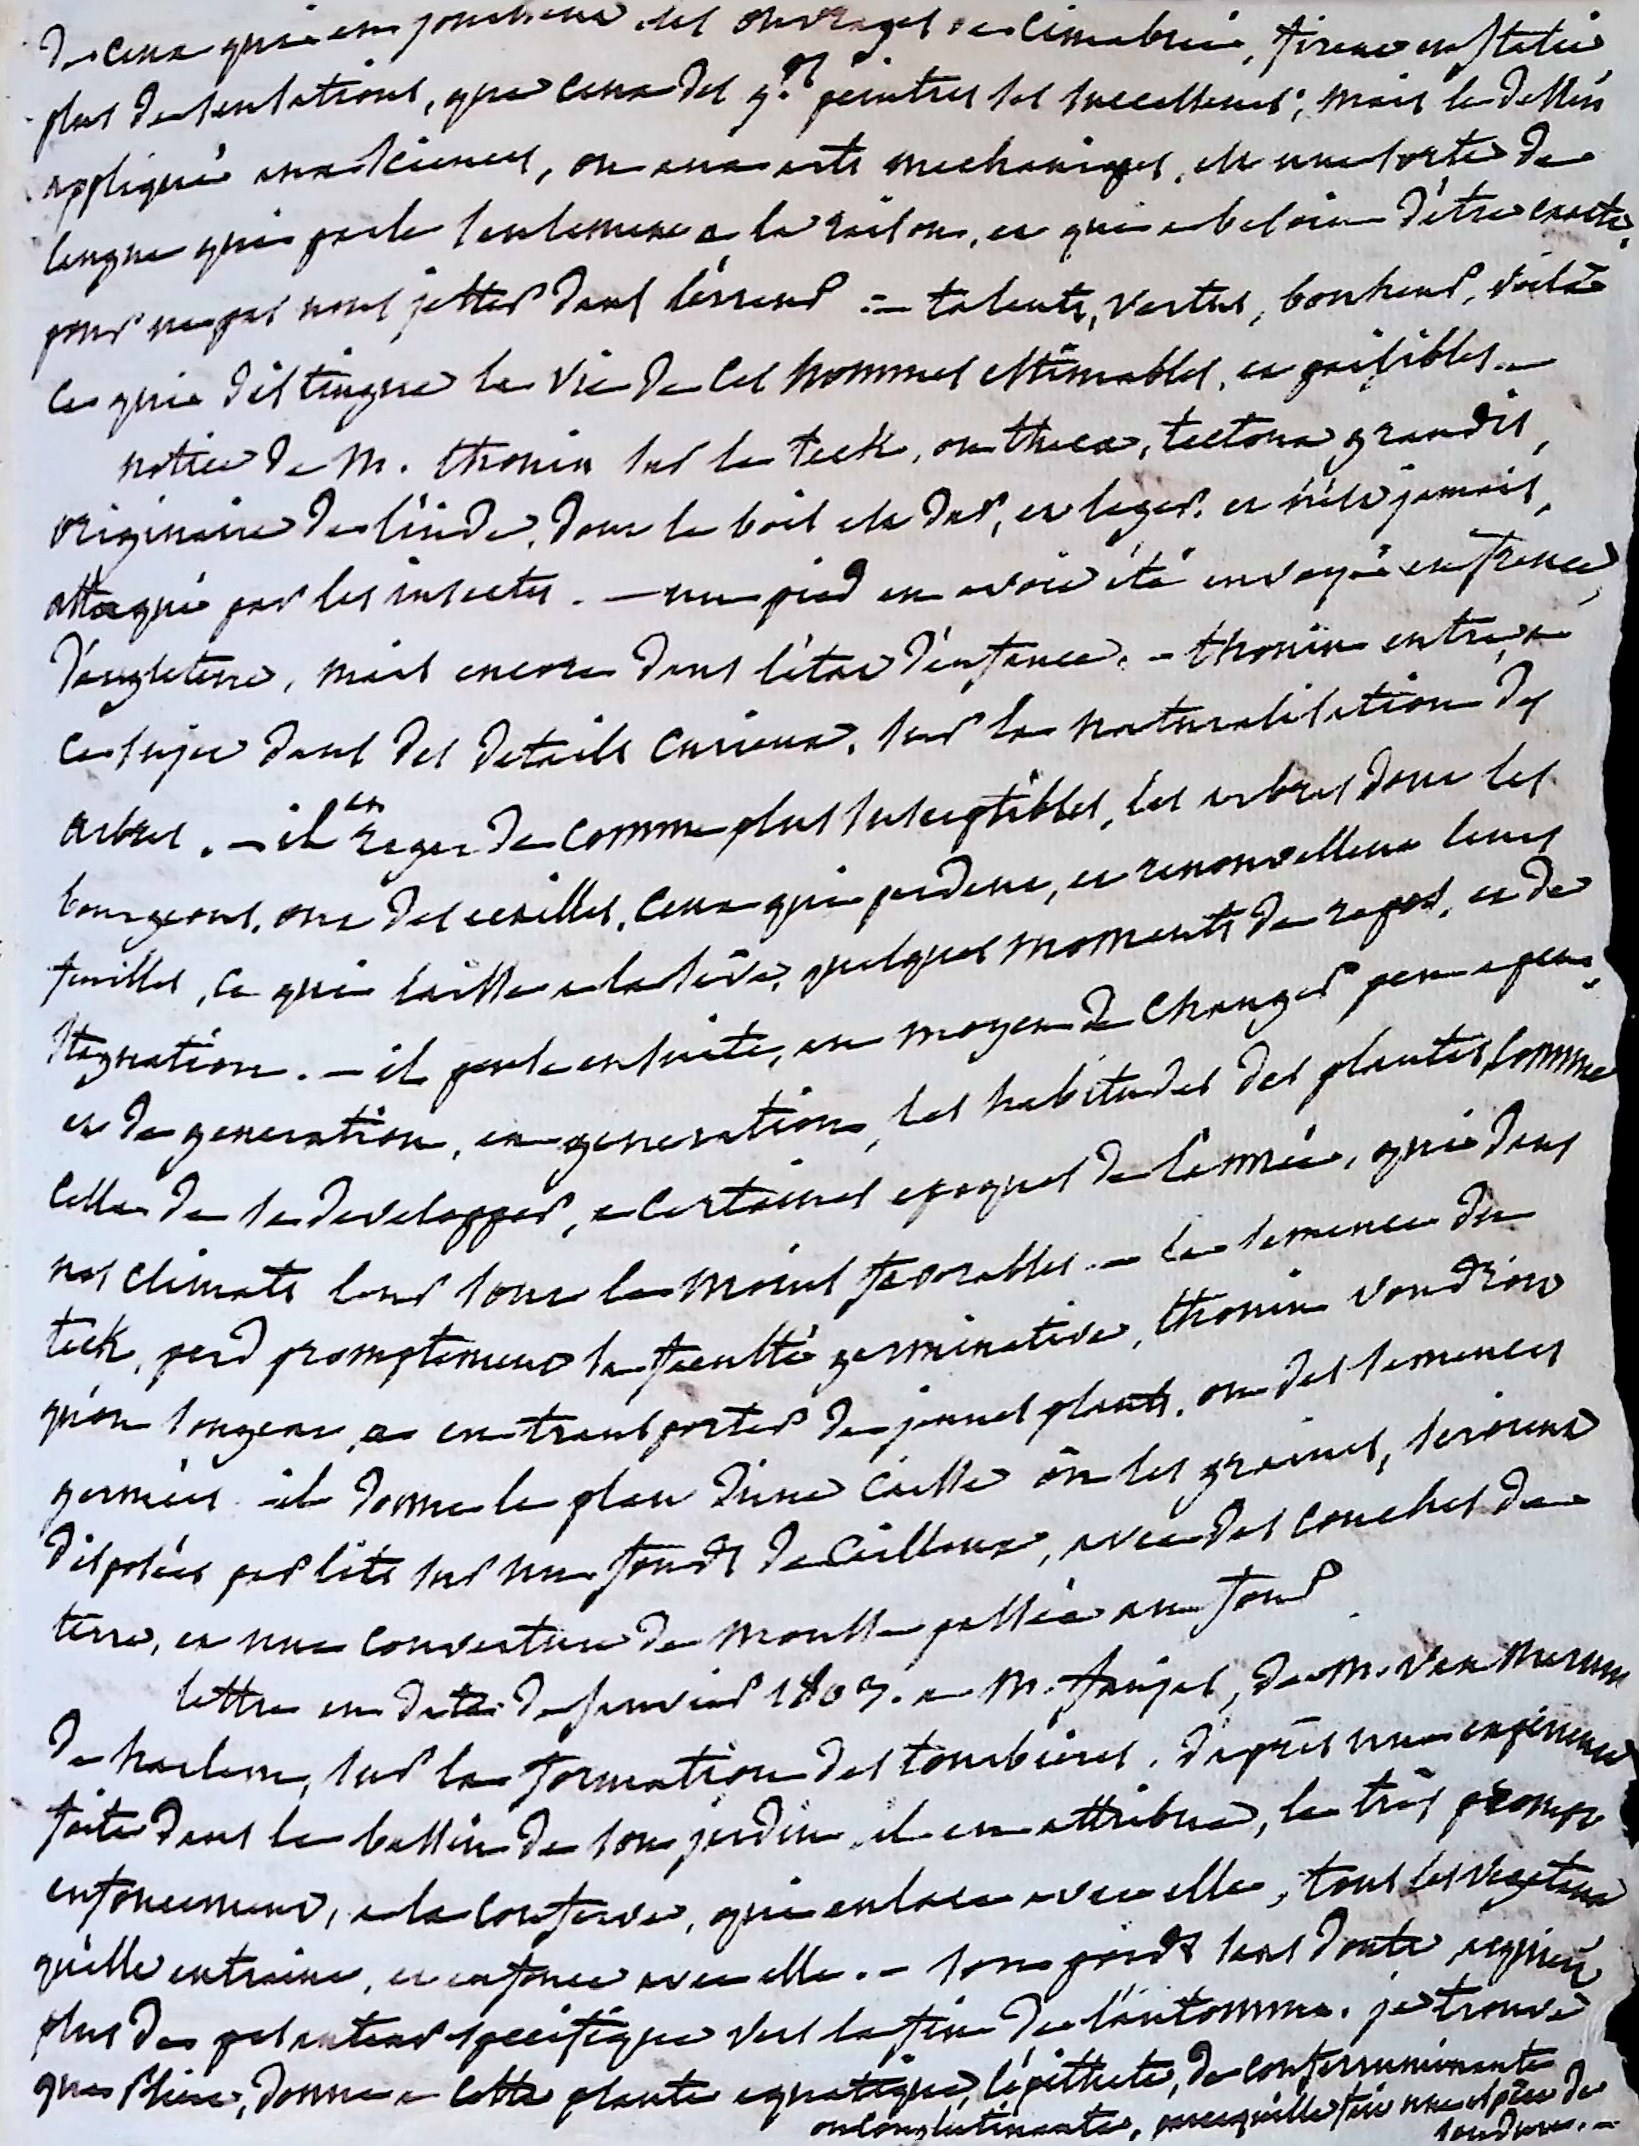 de ceux qui en jouissent les ouvrages de cimabuë, firent en italie
plus de sensations, que ceux des gds peintres ses successeurs; mais le dessin
appliqué aux sciences, ou aux arts mechaniques, est une sorte de
langue qui parle seulement a la raison, et qui a besoin d'être exacte,
pour ne pas nous jetter dans l'erreur :- talents, vertus, bonheur, voilà
ce qui distingue la vie de ces hommes estimables, et paisibles. -
notice de M. thouin sur le teck, ou theca, tectona grandis,
originaire de l'inde, dont le bois est dur, et leger, et n'est jamais,
attaqué par les insectes. - un pied en avoit été envoyé en france,
d'angleterre, mais encore dans l'état d'enfance. - thouin entre, a
ce sujet dans des details curieux, sur la naturalisation des
arbres. - il en regarde comme plus susceptibles, les arbres dont les
bourgeons, ont des ecailles, ceux qui perdent, et renouvellent leurs
feuilles, ce qui laisse a la sève, quelques moments de repos, et de
stagnation. - il parle ensuite, au moyen de changer peu a peu,
et de generation, en generation, les habitudes des plantes, comme
celle de se developper, a certaines epoques de l'année, qui dans
nos climats leur sont le moins favorables. - la semence du
teck, perd promptement sa faculté germinative, thouin voudroit
qu'on songeat, a en transporter de jeunes plants, ou des semences
germées. il donne le plan d'une caisse où les graines, seroient
disposées par lits sur un fonds de cailloux, avec des couches de
terre, et une couverture de mousse passée au four
lettre en date de janvier 1807. a M. faujas, de M. Van Marum
de harlem, sur la formation des tourbieres. d'après une experience
faite dans le bassin de son jardin, il en attribue, le très prompt
enfoncement, a la conferve, qui enlace avec elle, tous les vegetaux
qu'elle entraine, et enfonce avec elle. - son poids sans doute acquiert
plus de pesanteur specifique vers la fin de l'automne. je trouve
que Pline, donne a cette plante aquatique, l'epithete, de conferruminante
ou conglutinante, parcequ'elle fait une espèce de
soudure. -